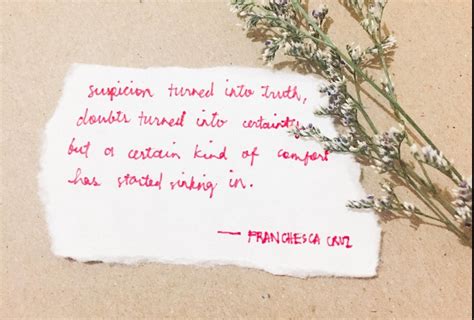 suspicion turned into truth,
doubts turned into certainty
but a certain kind of comfort
has started sinking in.
— FRANCHESCA CRUZ